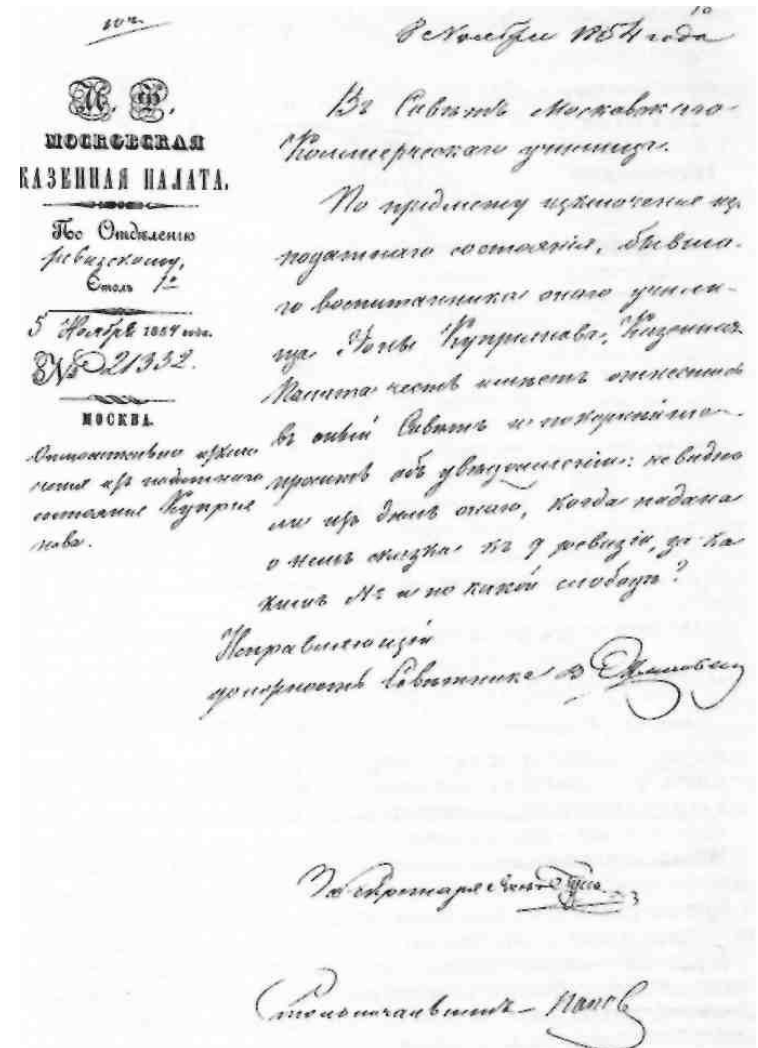 8 Ноября 1854 года
М. Ф.
МОСКОВСКАЯ
КАЗЕННАЯ ПАЛАТА.
По Отдѣленію
ревизскому,
Столъ 1й
5 Ноября 1854 года.
№ 21332.
МОСКВА.
Относительно исключенія изъ податнаго
состоянія Купріянова.
Въ Совѣтъ Московскаго
Коммерческаго училища.
По предмету исключенія изъ
податнаго состоянія, бывша-
го воспитанника онаго учили-
ща Купріянова, Казенная
Палата честь имѣетъ отнестись
въ оный Совѣтъ и покорнѣйше
проситъ объ увѣдомленіи: не видно
ли изъ дѣлъ онаго, когда подана
о немъ сказка къ 9 ревизіи, за ка-
кимъ № и по какой слободѣ?
Исправляющій
должность Совѣтника
За Секретаря
Столоначальникъ Попов